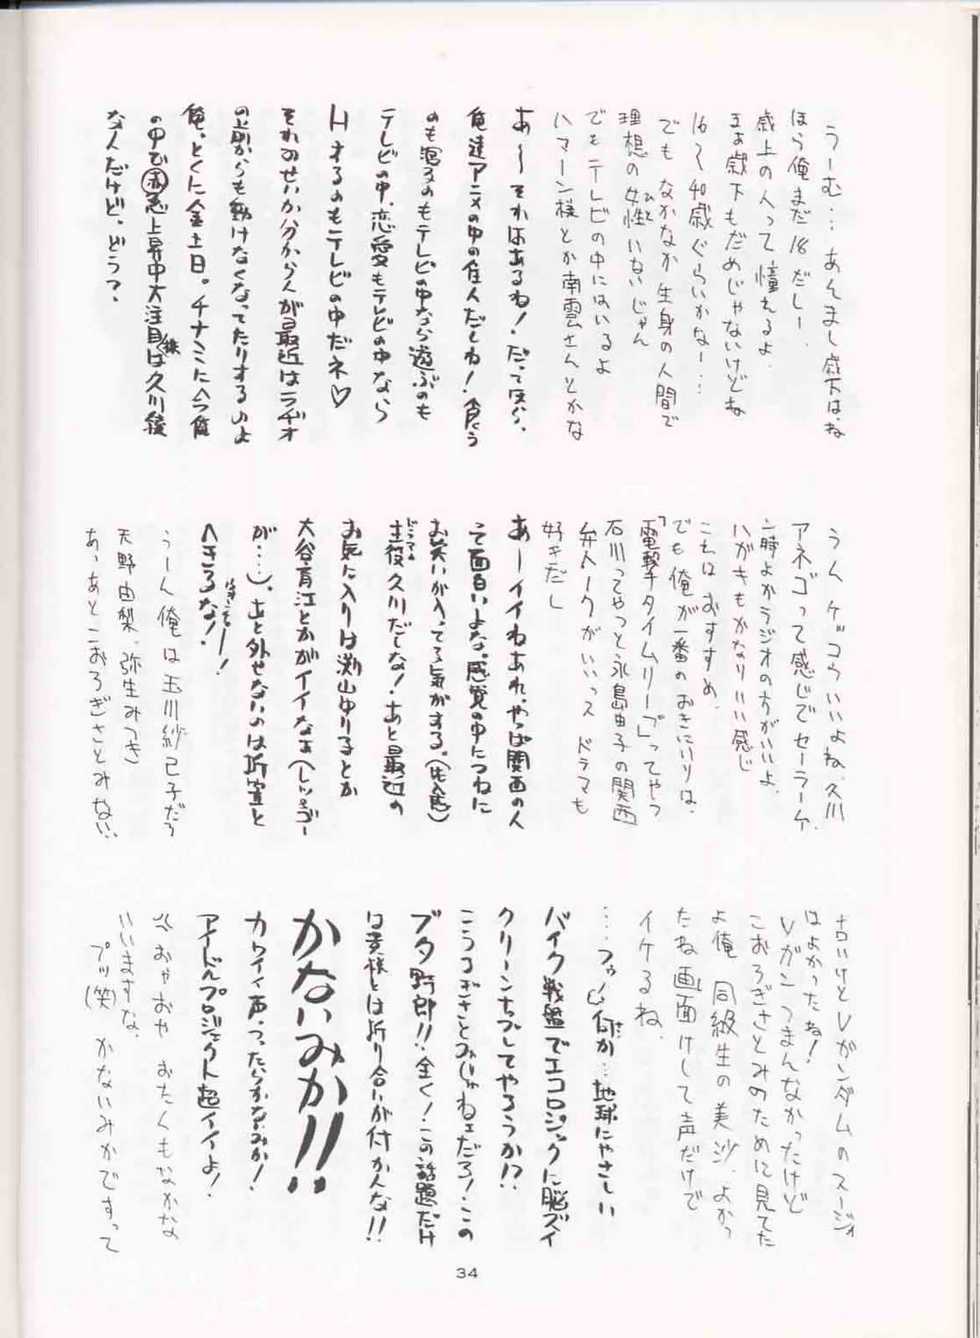 うーむ…あんまし歳下はね
ほら俺まだ18だしー、
歳上の人って憧れるよ
まぁ歳下もだめじゃないけどね
16〜40歳ぐらいかなー…
でもなかなか生身の人間で
理想の女性いないじゃん
ひと
でもテレビの中にはいるよ
ハマーン様とか南雲さんとかな
あ〜それはあるね!だってほら、
俺達アニメの中の住人だしね!食う
のも寝るのもテレビの中なら遊ぶのも
テレビの中、恋愛もテレビの中なら
Hするのもテレビの中だネ♡
それのせいか分からんが最近はラヂオ
の前からも動けなくなってたりするのよ
俺、とくに金土日。チナミに
の中で㊙急上昇中大注目株は久川綾
なんだけど、どう?
うん ケッコウいいよね、久川
アネゴって感じでセーラーや
二時よかラジオの方がいいよ、
ハガキもかなりいい感じ
これはおすすめ、
でも俺が一番のおきにいりは、
「電撃タイムリープ」ってやつ
石川ってやつと永島由子の関西
弁トークがいいっス ドラマも
好キだし
あーイイねあれ、やっぱ関西の人
って面白いよな。感覚の中につねに
お笑いが入ってる気がする。
主役久川だしな!あと最近の
お気に入りは渕山ゆり子とか
大谷育江とかがイイなぁ(レッツゴー
が…)。あと外せないのは折笠と
へきるな!
うーん 俺は玉川紗己子だろ
天野由梨、弥生みつき
あっあとこおろぎさとみない、
はよかったね!
Vガン つまんなかったけど
こおろぎさとみのために見てた
よ俺 同級生の美沙、よかっ
たね画面けして声だけで
イケるね、
…フゥ〜 何か…地球にやさしい
バイク戦艦でエコロジックに脳ズイ
クリーンナップしてやろうか!?
こうろぎさとみじゃねェだろ!この
ブタ野郎!!全く!この話題だけ
は貴様とは折り合いが付かんな!!
かないみか!!
カワイイ声、つったらかないみか!
アイドルプロジェクト超イイよ!
おやおや おたくもなかな
いいますな、
プッ(笑) かないみかですって
34